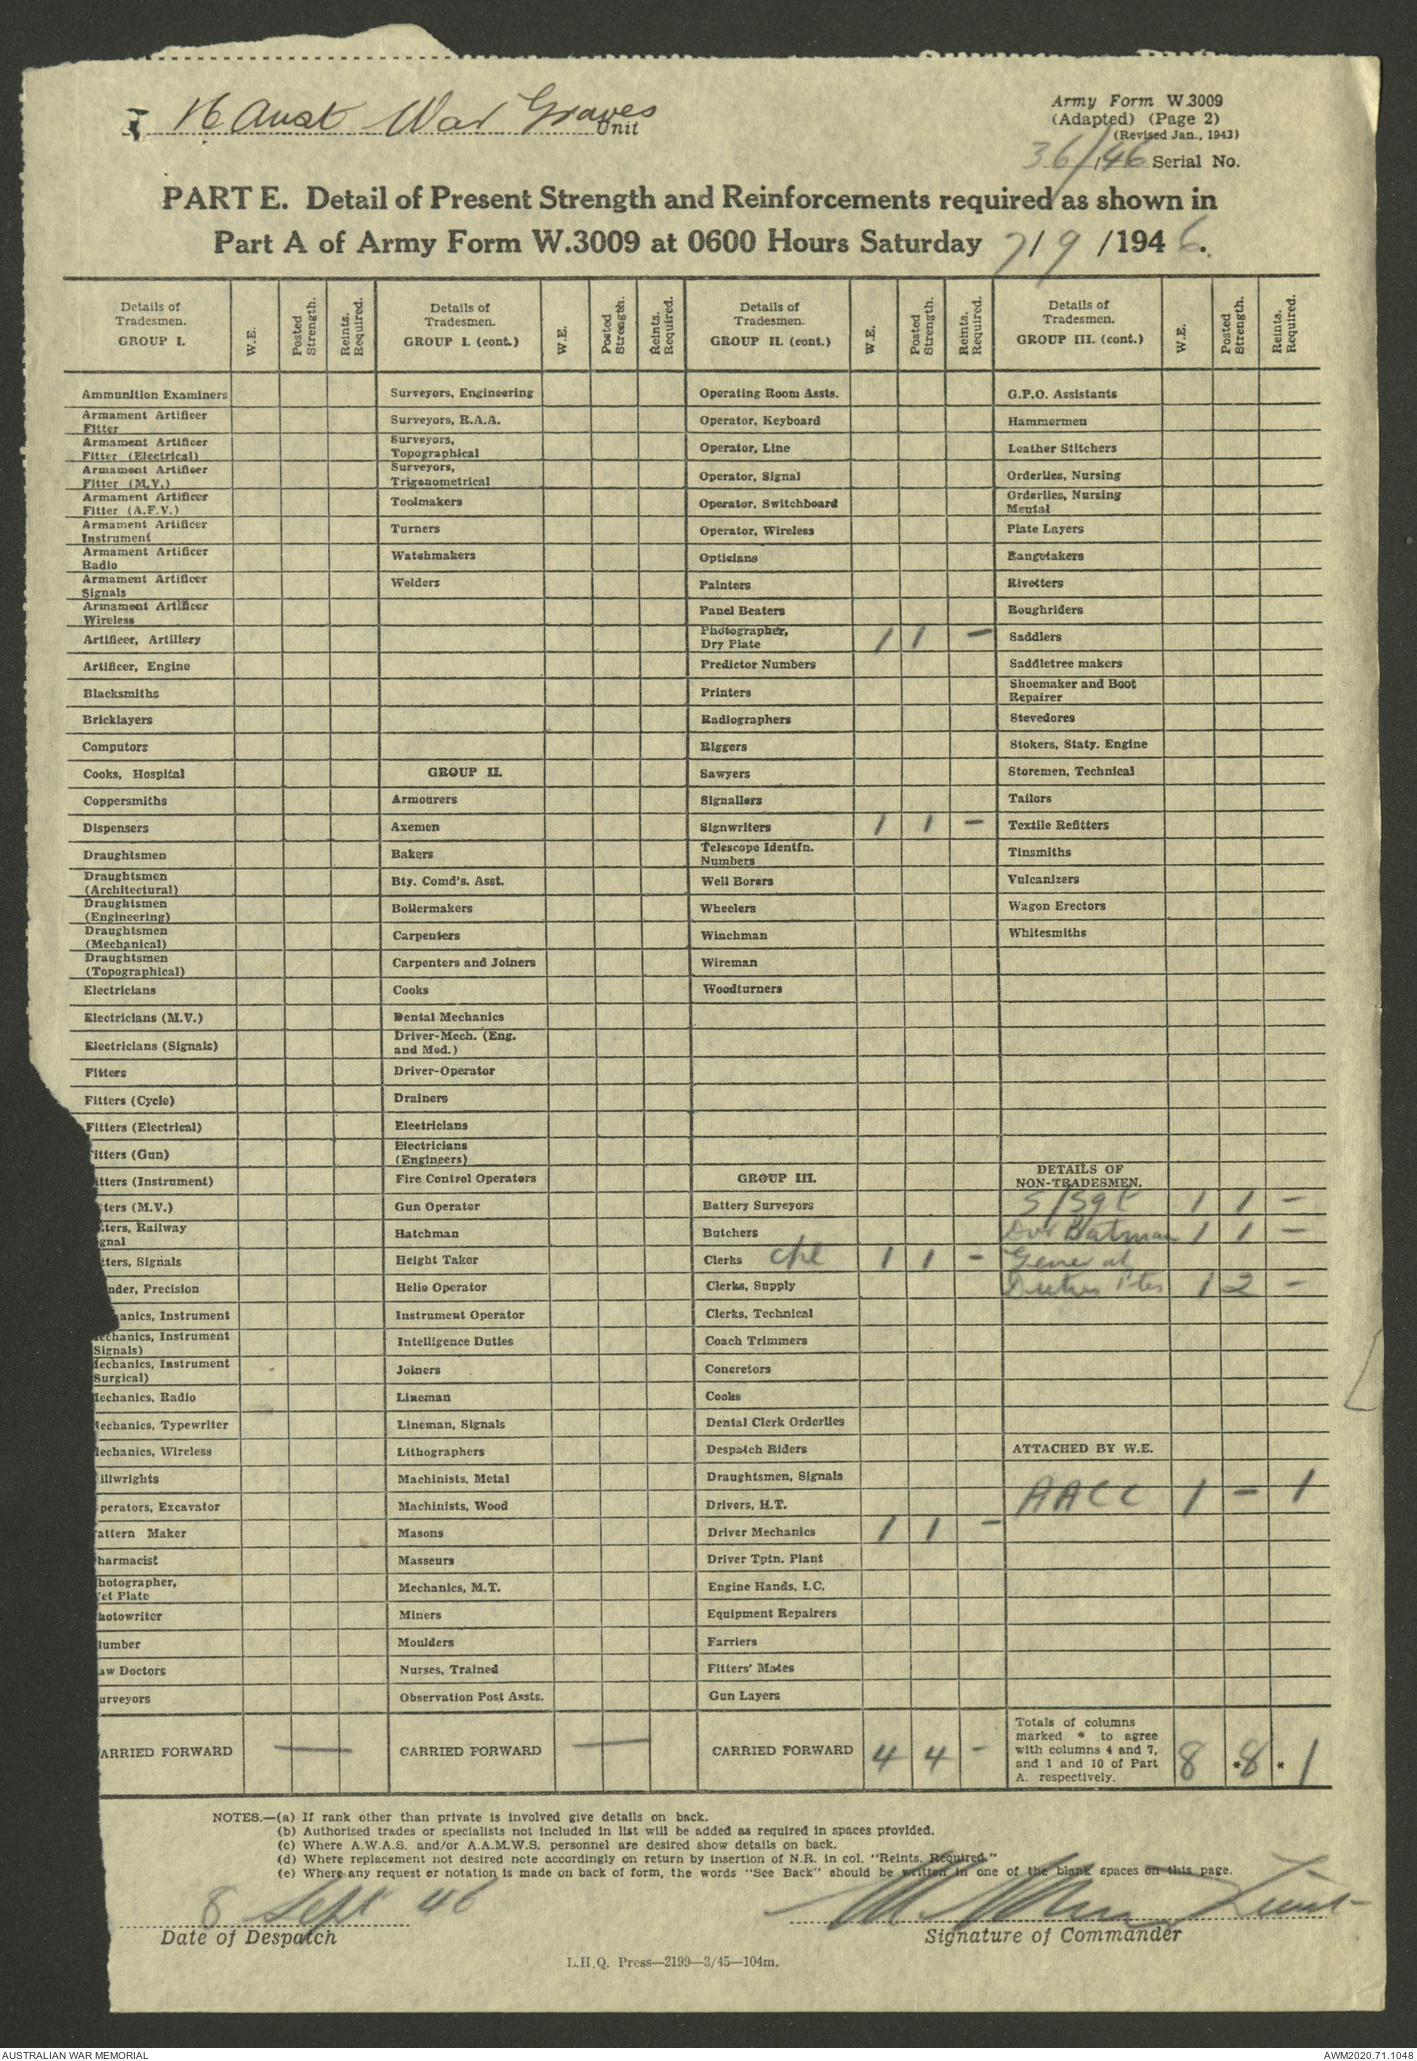 16 Aust War Graves Unit
Army Form W.3009
(Adapted) (Page 2)
(Revised Jan., 1943)
36/46 Serial No.
PART E. Detail of Present Strength and Reinforcements required as shown in
Part A of Army Form W.3009 at 0600 Hours Saturday 7/9/1946.
Details of Tradesmen. GROUP I. W.E. Posted Strength. Reints. Required.
Ammunition Examiners
Armament Artificer Fitter
Armament Artificer Fitter (Electrical)
Armament Artificer Fitter (M.V.)
Armament Artificer Fitter (A.F.V.)
Armament Artificer Instrument
Armament Artificer Radio
Armament Artificer Signals
Armament Artificer Wireless
Artificer, Artillery
Artificer, Engine
Blacksmiths
Bricklayers
Computors
Cooks, Hospital
Coppersmiths
Dispensers
Draughtsmen
Draughtsmen (Architectural)
Draughtsmen (Engineering)
Draughtsmen (Mechanical)
Draughtsmen (Topographical)
Electricians
Electricians (M.V.)
Electricians (Signals)
Fitters
Fitters (Cycle)
Fitters (Electrical)
itters (Gun)
itters (Instrument)
ters (M.V.)
ters, Railway
gnal
tters, Signals
nder, Precision
anics, Instrument
echanics, Instrument
Signals)
lechanics, Instrument
Surgical)
lechanics, Radio
lechanics, Typewriter
lechanics, Wireless
illwrights
perators, Excavator
attern Maker
harmacist
hotographer,
et Plate
hotowriter
lumber
aw Doctors
urveyors
ARRIED FORWARD —
Details of Tradesmen. GROUP I. (cont.) W.E. Posted Strength. Reints. Required.
Surveyors, Engineering
Surveyors, R.A.A.
Surveyors, Topographical
Surveyors, Trigonometrical
Toolmakers
Turners
Watchmakers
Welders
GROUP II.
Armourers
Axemen
Bakers
Bty. Comd's. Asst.
Boilermakers
Carpenters
Carpenters and Joiners
Cooks
Dental Mechanics
Driver-Mech. (Eng. and Med.)
Driver-Operator
Drainers
Electricians
Electricians (Engineers)
Fire Control Operators
Gun Operator
Hatchman
Height Taker
Helio Operator
Instrument Operator
Intelligence Duties
Joiners
Lineman
Lineman, Signals
Lithographers
Machinists, Metal
Machinists, Wood
Masons
Masseurs
Mechanics, M.T.
Miners
Moulders
Nurses, Trained
Observation Post Assts.
CARRIED FORWARD —
Details of Tradesmen. GROUP II. (cont.) W.E. Posted Strength. Reints. Required.
Operating Room Assts.
Operator, Keyboard
Operator, Line
Operator, Signal
Operator, Switchboard
Operator, Wireless
Opticians
Painters
Panel Beaters
Photographer, Dry Plate 1 1 -
Predictor Numbers
Printers
Radiographers
Riggers
Sawyers
Signallers
Signwriters 1 1 -
Telescope Identfn. Numbers
Well Borers
Wheelers
Winchman
Wireman
Woodturners
GROUP III.
Battery Surveyors
Butchers
Clerks Cpl 1 1 -
Clerks, Supply
Clerks, Technical
Coach Trimmers
Concretors
Cooks
Dental Clerk Orderlies
Despatch Riders
Draughtsmen, Signals
Drivers, H.T.
Driver Mechanics 1 1 -
Driver Tptn. Plant
Engine Hands, I.C.
Equipment Repairers
Farriers
Fitters' Mates
Gun Layers
CARRIED FORWARD 4 4 -
Details of Tradesmen. GROUP III. (cont.) W.E. Posted Strength. Reints. Required.
G.P.O. Assistants
Hammermen
Leather Stitchers
Orderlies, Nursing
Orderlies, Nursing Mental
Plate Layers
Rangetakers
Rivetters
Roughriders
Saddlers
Saddletree makers
Shoemaker and Boot Repairer
Stevedores
Stokers, Staty. Engine
Storemen, Technical
Tailors
Textile Refitters
Tinsmiths
Vulcanizers
Wagon Erectors
Whitesmiths
DETAILS OF NON-TRADESMEN.
S/Sgt 1 1 -
Dvr Batman 1 1 -
General
Duties Ptes 1 2 -
ATTACHED BY W.E.
AACC 1 - 1
Totals of columns marked * to agree with columns 4 and 7, and 1 and 10 of Part A. respectively. 8 *8 *1
NOTES.—(a) If rank other than private is involved give details on back.
(b) Authorised trades or specialists not included in list will be added as required in spaces provided.
(c) Where A.W.A.S. and/or A.A.M.W.S. personnel are desired show details on back.
(d) Where replacement not desired note accordingly on return by insertion of N.R. in col. "Reints. Required."
(e) Where any request or notation is made on back of form, the words "See Back" should be written in one of the blank spaces on this page.
8 Sept 46
Date of Despatch
Lieut
Signature of Commander
L.H.Q. Press—2199—3/45—104m.
AUSTRALIAN WAR MEMORIAL
AWM2020.71.1048